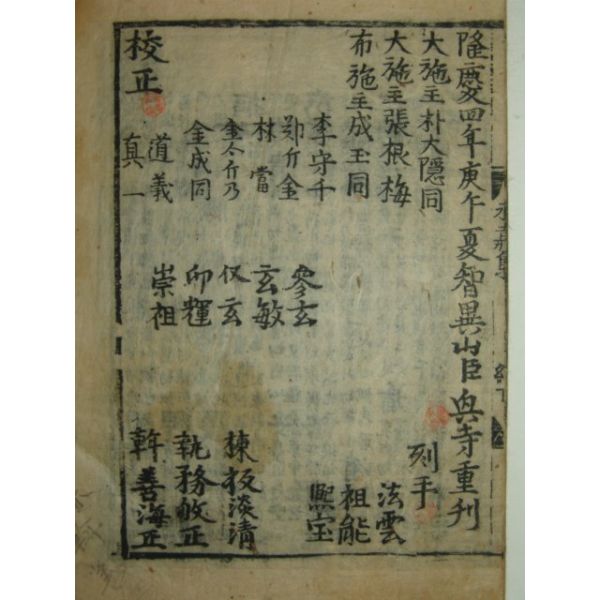 隆慶四年庚午夏智異山臣興寺重刊
大施主朴大隱同 刻手
大施主張根梅 法雲
布施主成玉同 祖能
李守千 熙宝
鄭斤金 叅玄
林當 玄敏
金今斤乃 玄 鍊板淡清
金成同 印輝 執務敏正
道義 崇祖 幹善海正
真一
校正